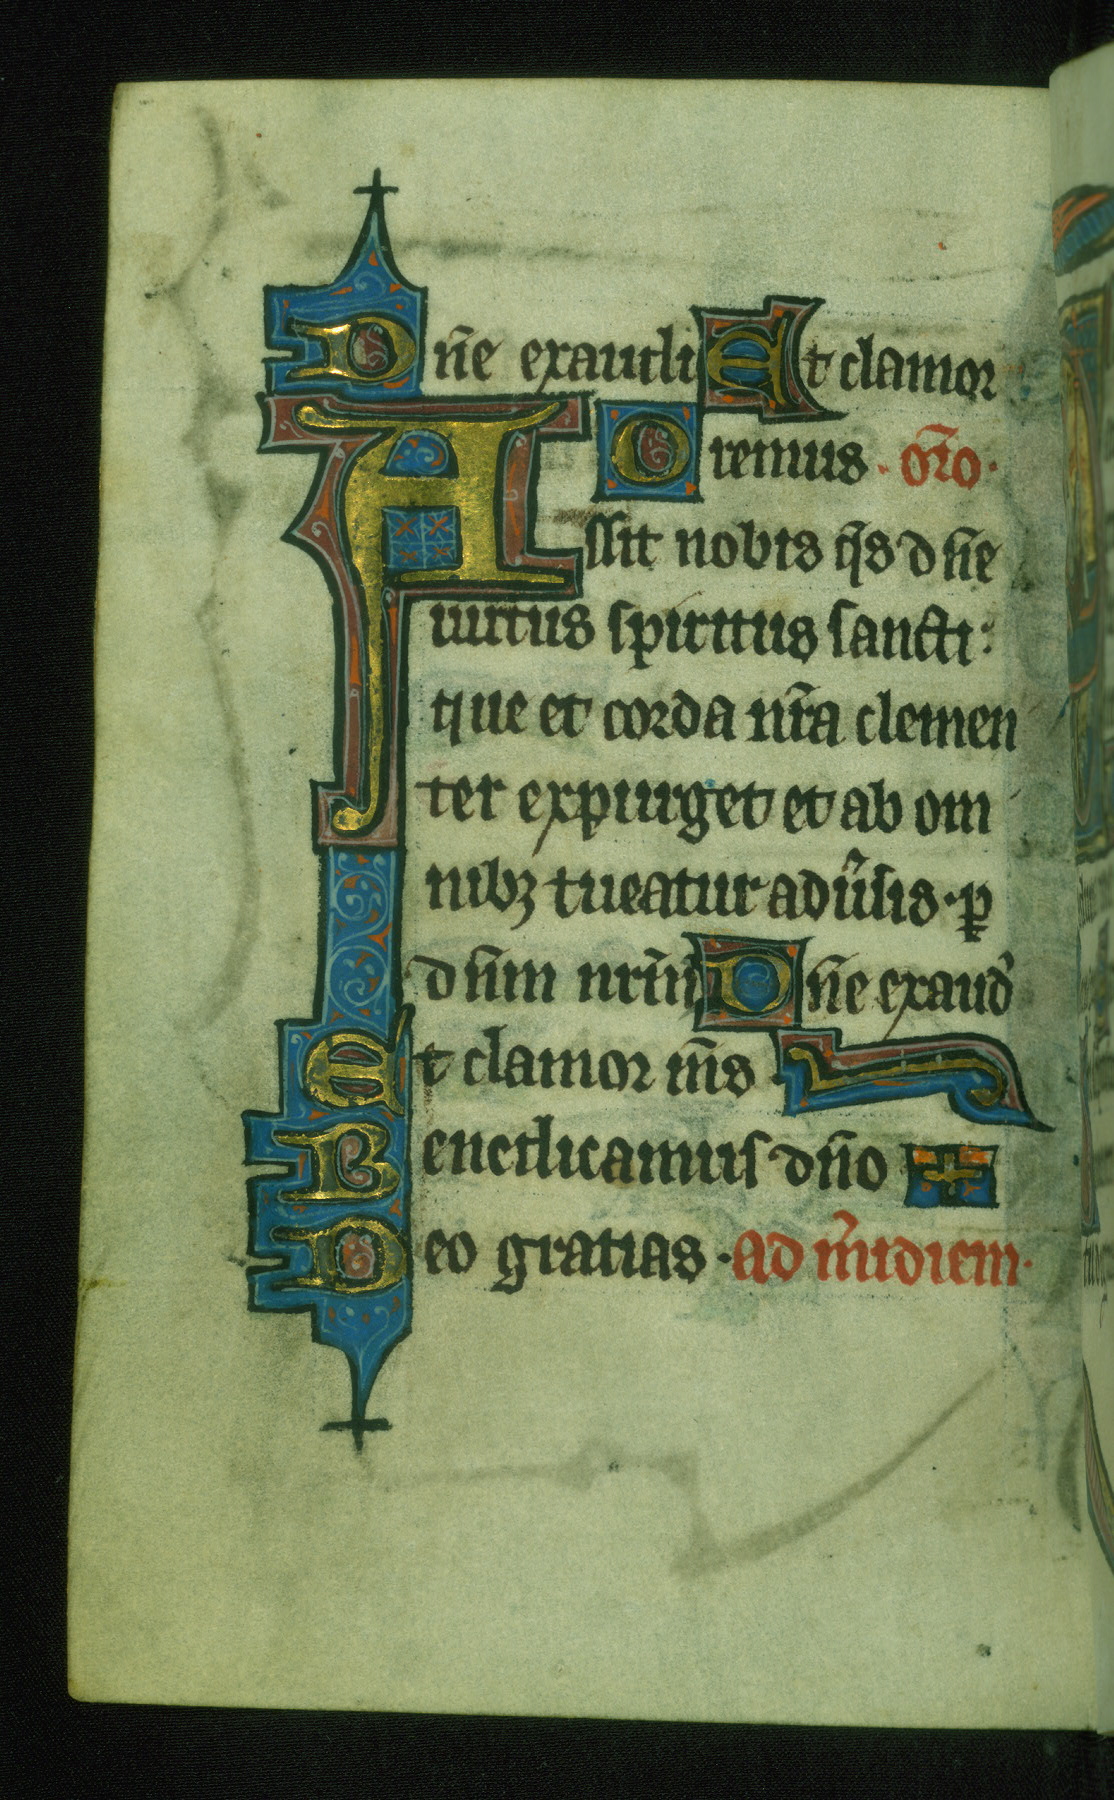 Dñe exaudi Et clamor
Oremus · or̃o ·
Assit nobis q̃s dñe
uirtus spiritus sancti:
que et corda nr̃a clemen
ter expurget et ab om
nibꝫ tueatur adũsis · ꝑ
dñm nrm̃ Dñe exaud̾
Et clamor m̃s
Benedicamus dño
Deo gratias · ad m̃idiem ·